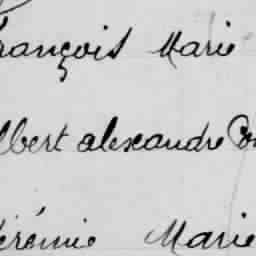 rançois Marie
lbert alexandre Con
érémie Marie